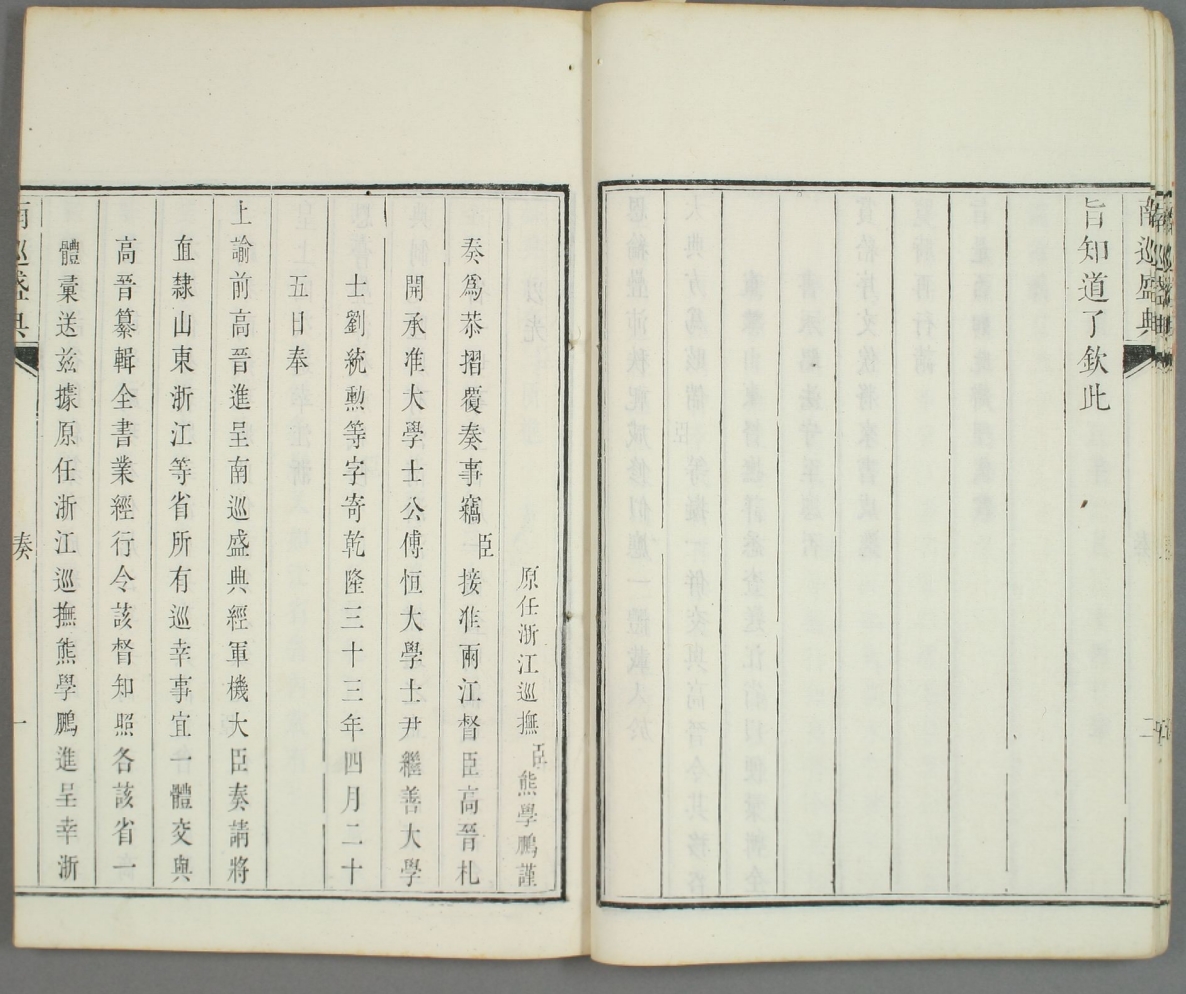 南巡盛典
二
旨知道了欽此
原任浙江巡撫臣熊學鵬謹
奏爲恭摺覆奏事竊臣接准兩江督臣高晉札
開承准大學士公傅恒大學士尹繼善大學
士劉統勲等字寄乾隆三十三年四月二十
五日奉
上諭前高晉進呈南巡盛典經軍機大臣奏請將
直隸山東浙江等省所有巡幸事宜一體交與
高晉纂輯全書業經行令該督知照各該省一
體彙送兹據原任浙江巡撫熊學鵬進呈幸浙
南巡盛典
奏
一